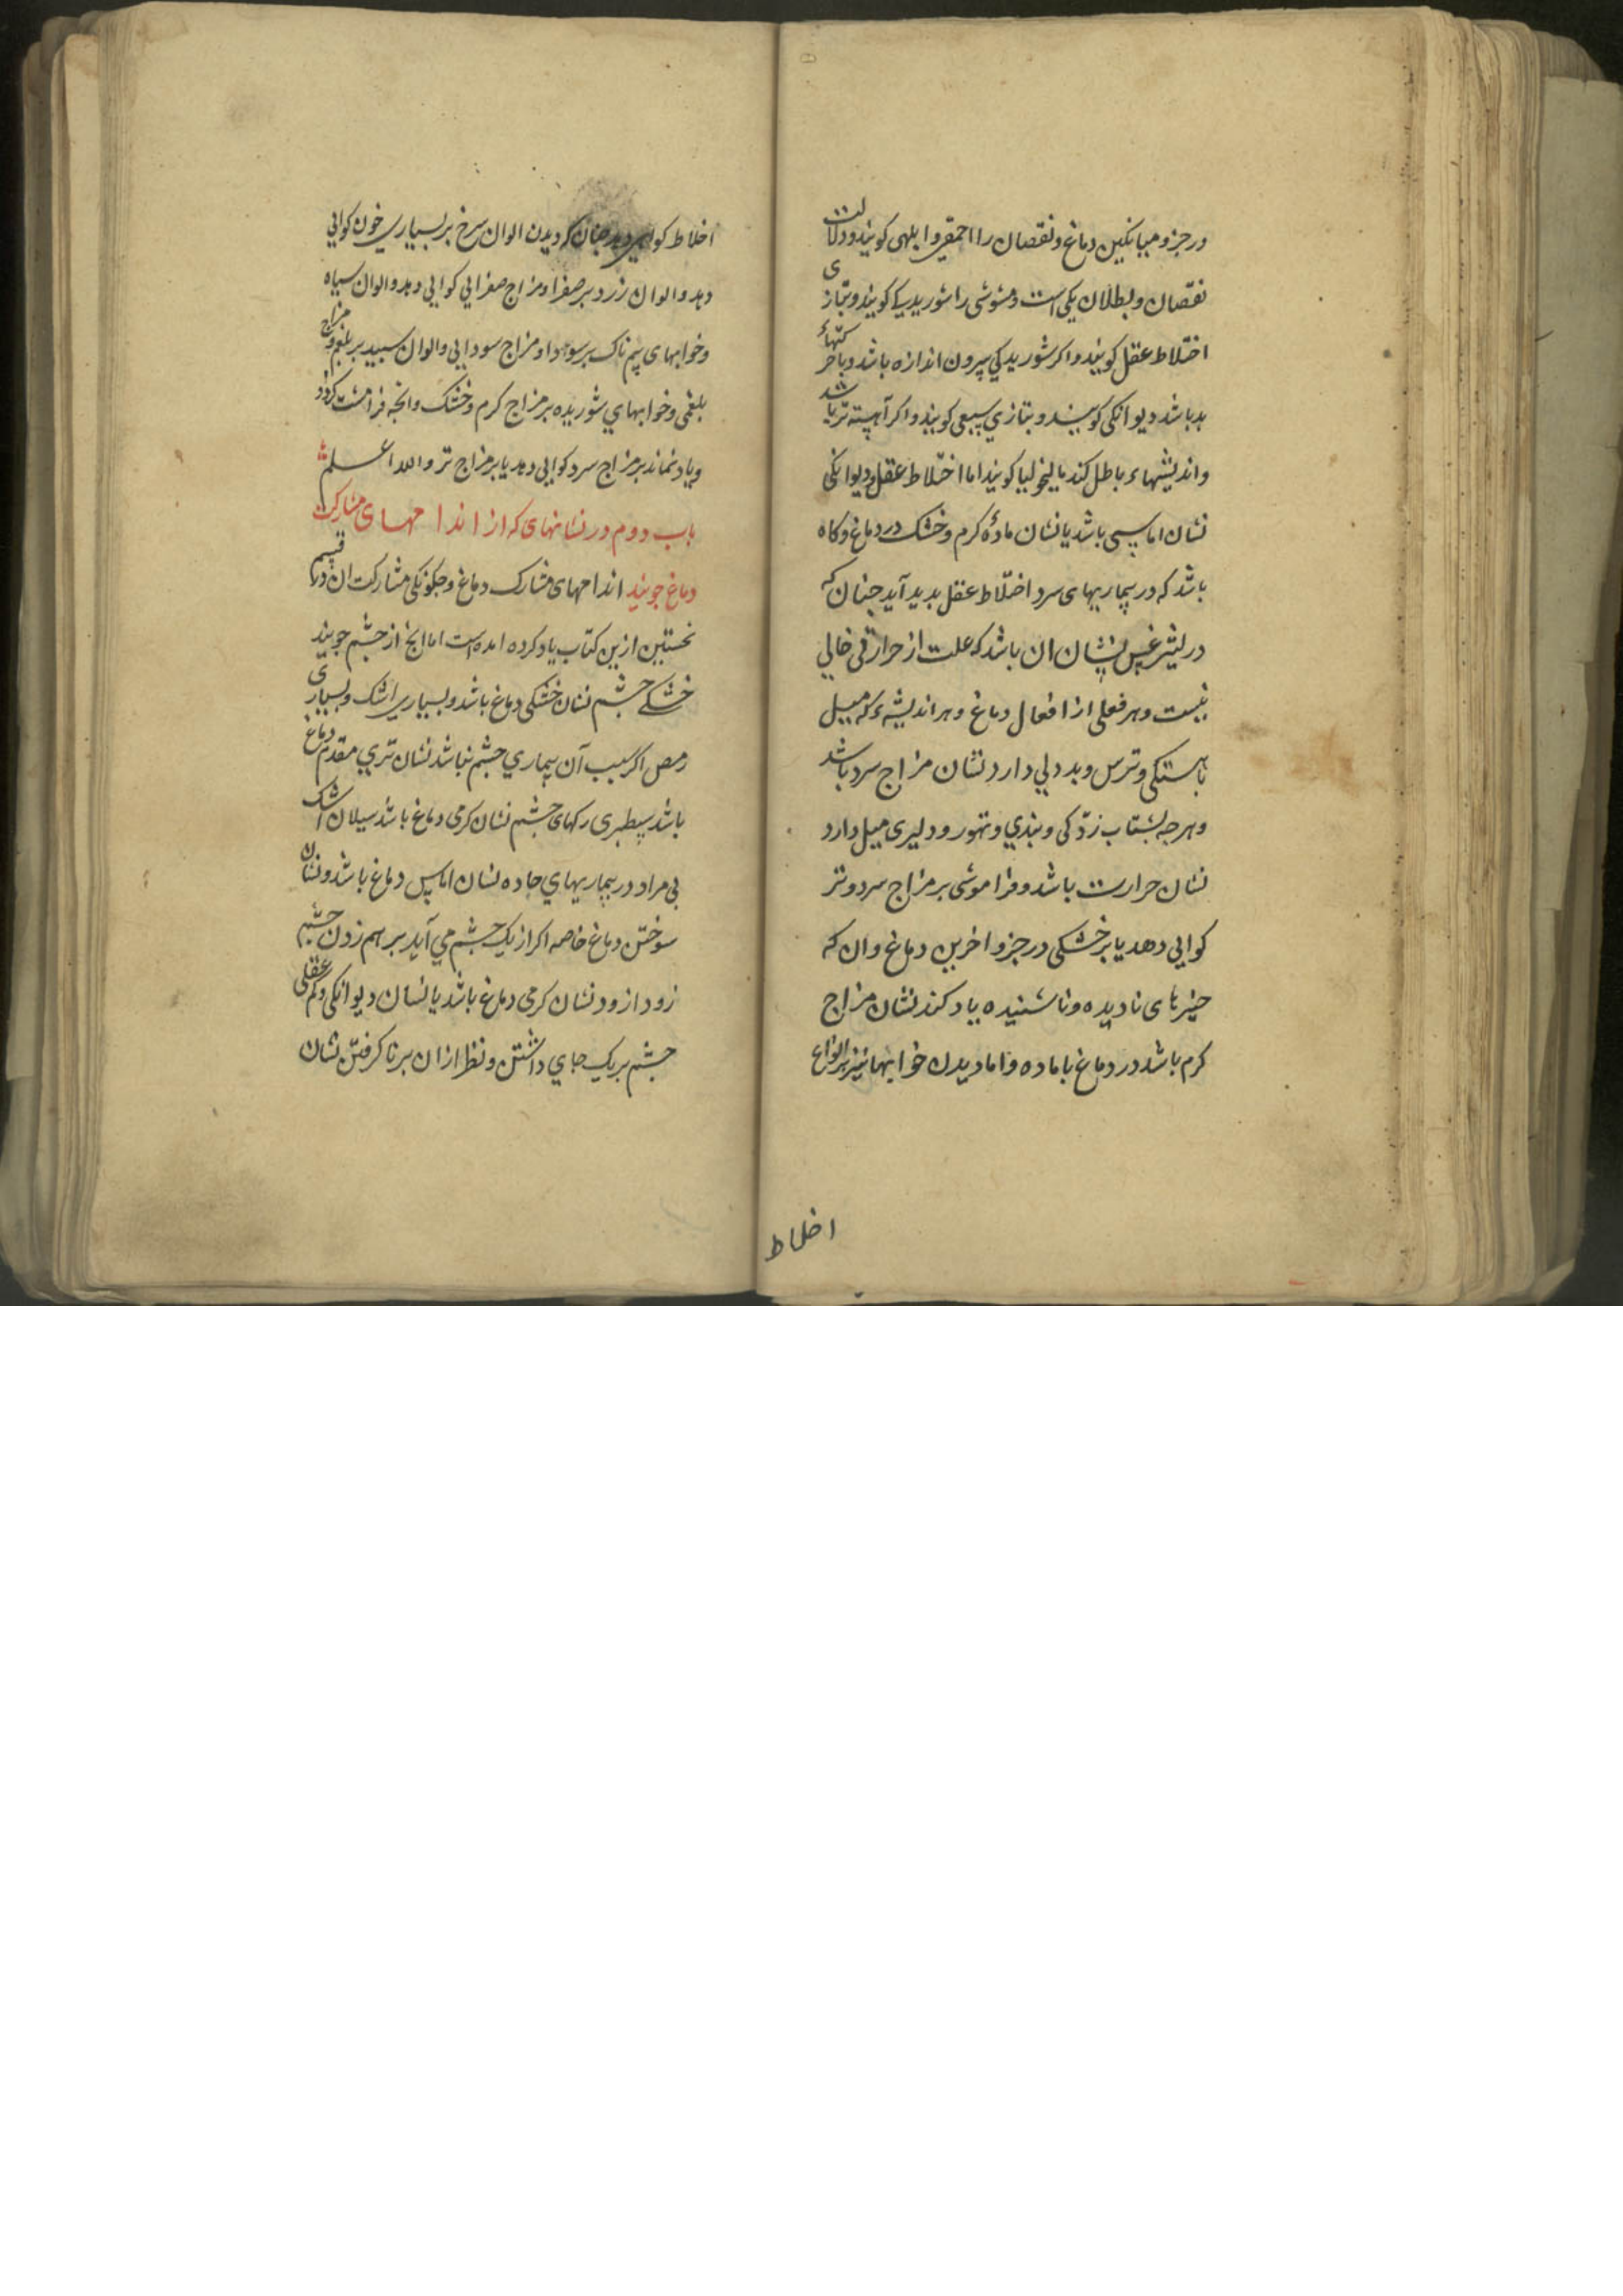 درجزو میانکین دماغ و نقصان را احمقی و ابلهی کویند و دلالت
نقصان و بطلان یکی است و مشوشی را شوریدکی کویند و بتازی
اختلاط عقل کویند و اکر شوریدکی بیرون اندازه باشد و با حرکتهاء
بد باشد دیوانکی کویند و بتازی سبعی کویند و اکر آهسته تر باشد
و اندیشهاء باطل کند مالیخولیا کویند اما اختلاط عقل و دیوانکی
نشان اماسی باشد یا نشان مادهٔ کرم و خشک در دماغ و کاه
باشد که در بیماریهای سرد اختلاط عقل بدید آید جنان که
در لیثرغس نشان ان باشد که علت از حرارتی خالی
نیست و هر فعلی از افعال دماغ و هر اندیشهٔ که میل
باهستکی و ترس و بددلی دارد نشان مزاج سرد باشد
و هرجه بشتاب زدکی و تندی و تهور و دلیری میل دارد
نشان حرارت باشد و فراموشی بر مزاج سرد و تر
کوایی دهد یا بر خشکی در جزو اخرین دماغ و ان که
جیزهای نادیده و ناشنیده یاد کند نشان مزاج
کرم باشد در دماغ با ماده و اما دیدن خوابها نیز بر انواع
اخلاط
اخلاط کوایی دهد جنان که دیدن الوان سرخ بر بسیاری خون کوایی
دهد و الوان زرد بر صفرا و مزاج صفرایی کوایی دهد و الوان سیاه
و خوابهای بیم ناک بر سودا و مزاج سودایی و الوان سبید بر بلغم و مزاج
بلغمی و خوابهای شوریده بر مزاج کرم و خشک و انجه فرامشت کردد
و یاد نماند بر مزاج سرد کوایی دهد یا بر مزاج تر و الله اعلم
باب دوم در نشانهای که از اندامهای مشارک
دماغ جویند اندامهای مشارک دماغ و جکونکی مشارکت ان در قسم
نخستین ازین کتاب یاد کرده امده است اما انج از جشم جویند
خشکی جشم نشان خشکی دماغ باشد و بسیاری اشک و بسیاری
رمص اکر سبب آن بیماری جشم نباشد نشان تری مقدم دماغ
باشد سطبری رکهای جشم نشان کرمی دماغ باشد سیلان اشک
بی مراد در بیماریهای حاده نشان اماس دماغ باشد و نشان
سوختن دماغ خاصه اکر از یک جشم می آید برهم زدن جشم
زود ازود نشان کرمی دماغ باشد یا نشان دیوانکی و کم عقلی
جشم بر یک جای داشتن و نظر ازان برنا کرفتن نشان